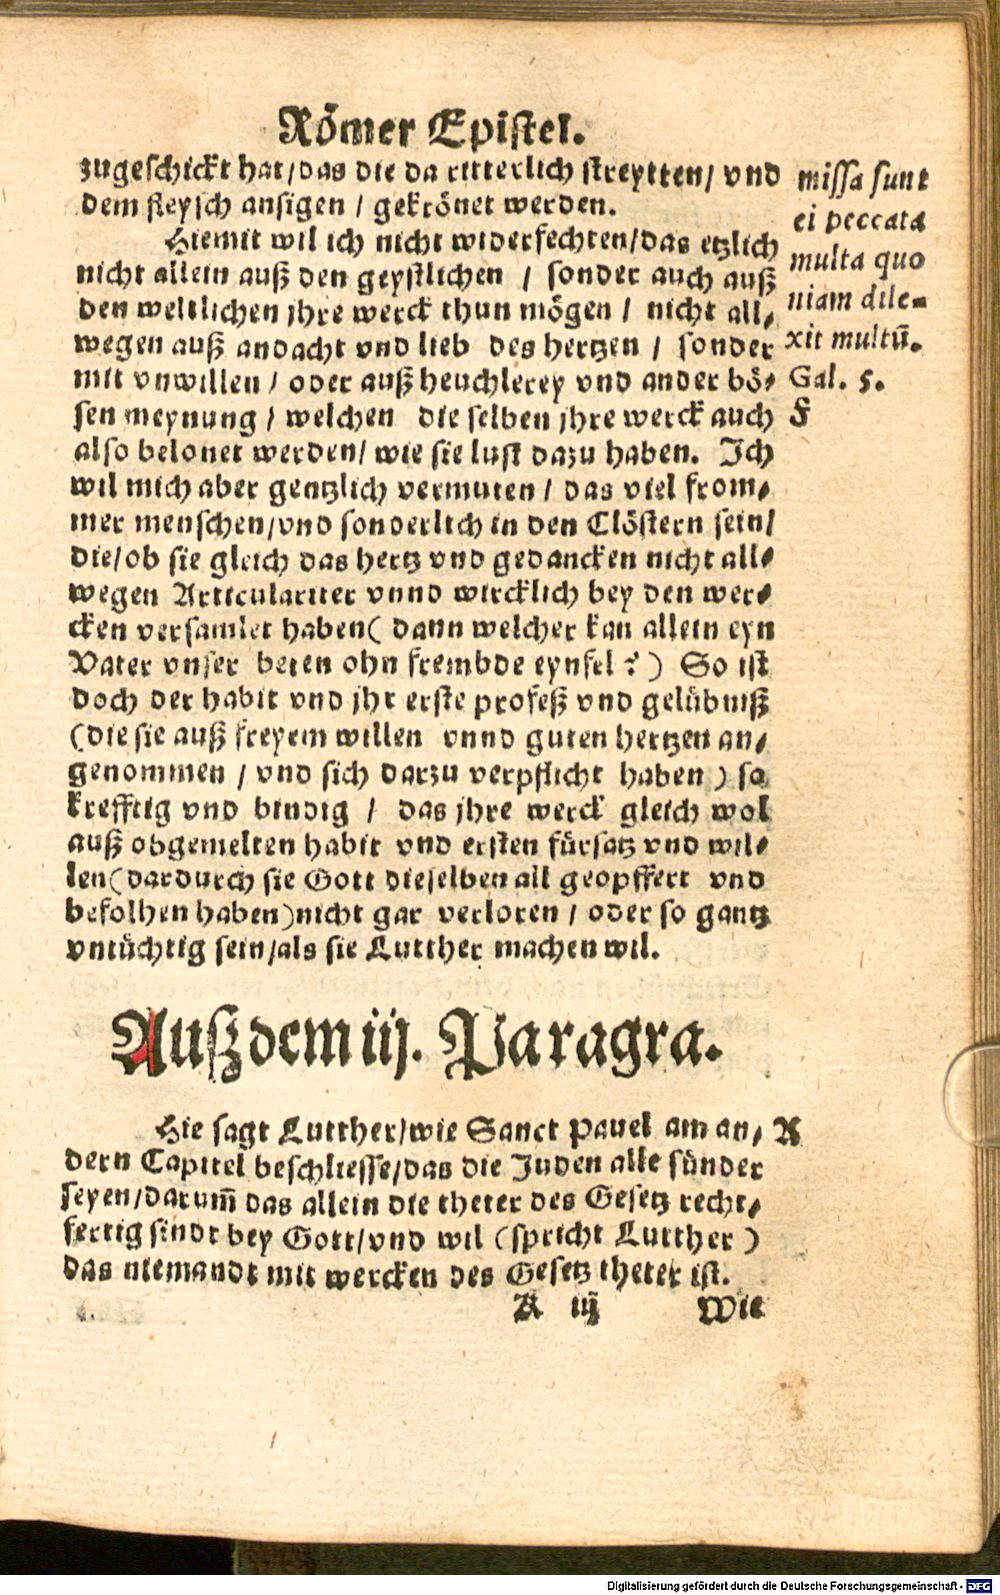 Römer Epistel.
zugeschickt hat/das die da ritterlich streytten/ vnd
dem fleysch ansigen / gekrönet werden.
Hiemit wil ich nicht widerfechten/das etzlich
nicht allein auß den geystlichen / sonder auch auß
den weltlichen jhre werck thun mögen / nicht all⸗
wegen auß andacht vnd lieb des hertzen / sonder
mit vnwillen / oder auß heuchlerey vnd ander bö⸗
sen meynung / welchen die selben jhre werck auch
also belonet werden/ wie sie lust dazu haben. Ich
wil mich aber gentzlich vermuten / das viel from⸗
mer menschen/vnd sonderlich in den Clöstern sein/
die/ob sie gleich das hertz vnd gedancken nicht all⸗
wegen Articulariter vnnd wircklich bey den wer⸗
cken versamlet haben( dann welcher kan allein eyn
Vater vnser beten ohn frembde eynfel?) So ist
doch der habit vnd jhr erste profeß vnd gelübniß
(die sie auß freyem willen vnnd guten hertzen an⸗
genommen / vnd sich darzu verpflicht haben ) so
krefftig vnd bindig / das jhre werck gleich wol
auß obgemelten habit vnd ersten fürsatz vnd wil⸗
len(dardurch sie Gott dieselben all geopffert vnd
befolhen haben)nicht gar verloren / oder so gantz
vntüchtig sein/als sie Lutther machen wil.
missa sunt
ei peccata
multa quo
niam dile=
xit multū.
Gal. 5.
F
Auß dem iij. Paragra.
Hie sagt Lutther/wie Sanct Pauel am an⸗
dern Capitel beschliesse/das die Juden alle sünder
seyen/darum̃ das allein die theter des Gesetz recht⸗
fertig sindt bey Gott/vnd wil (spricht Lutther )
das niemandt mit wercken des Gesetz theter ist.
A
A iij Wie
Digitalisierung gefördert durch die Deutsche Forschungsgemeinschaft - DFG